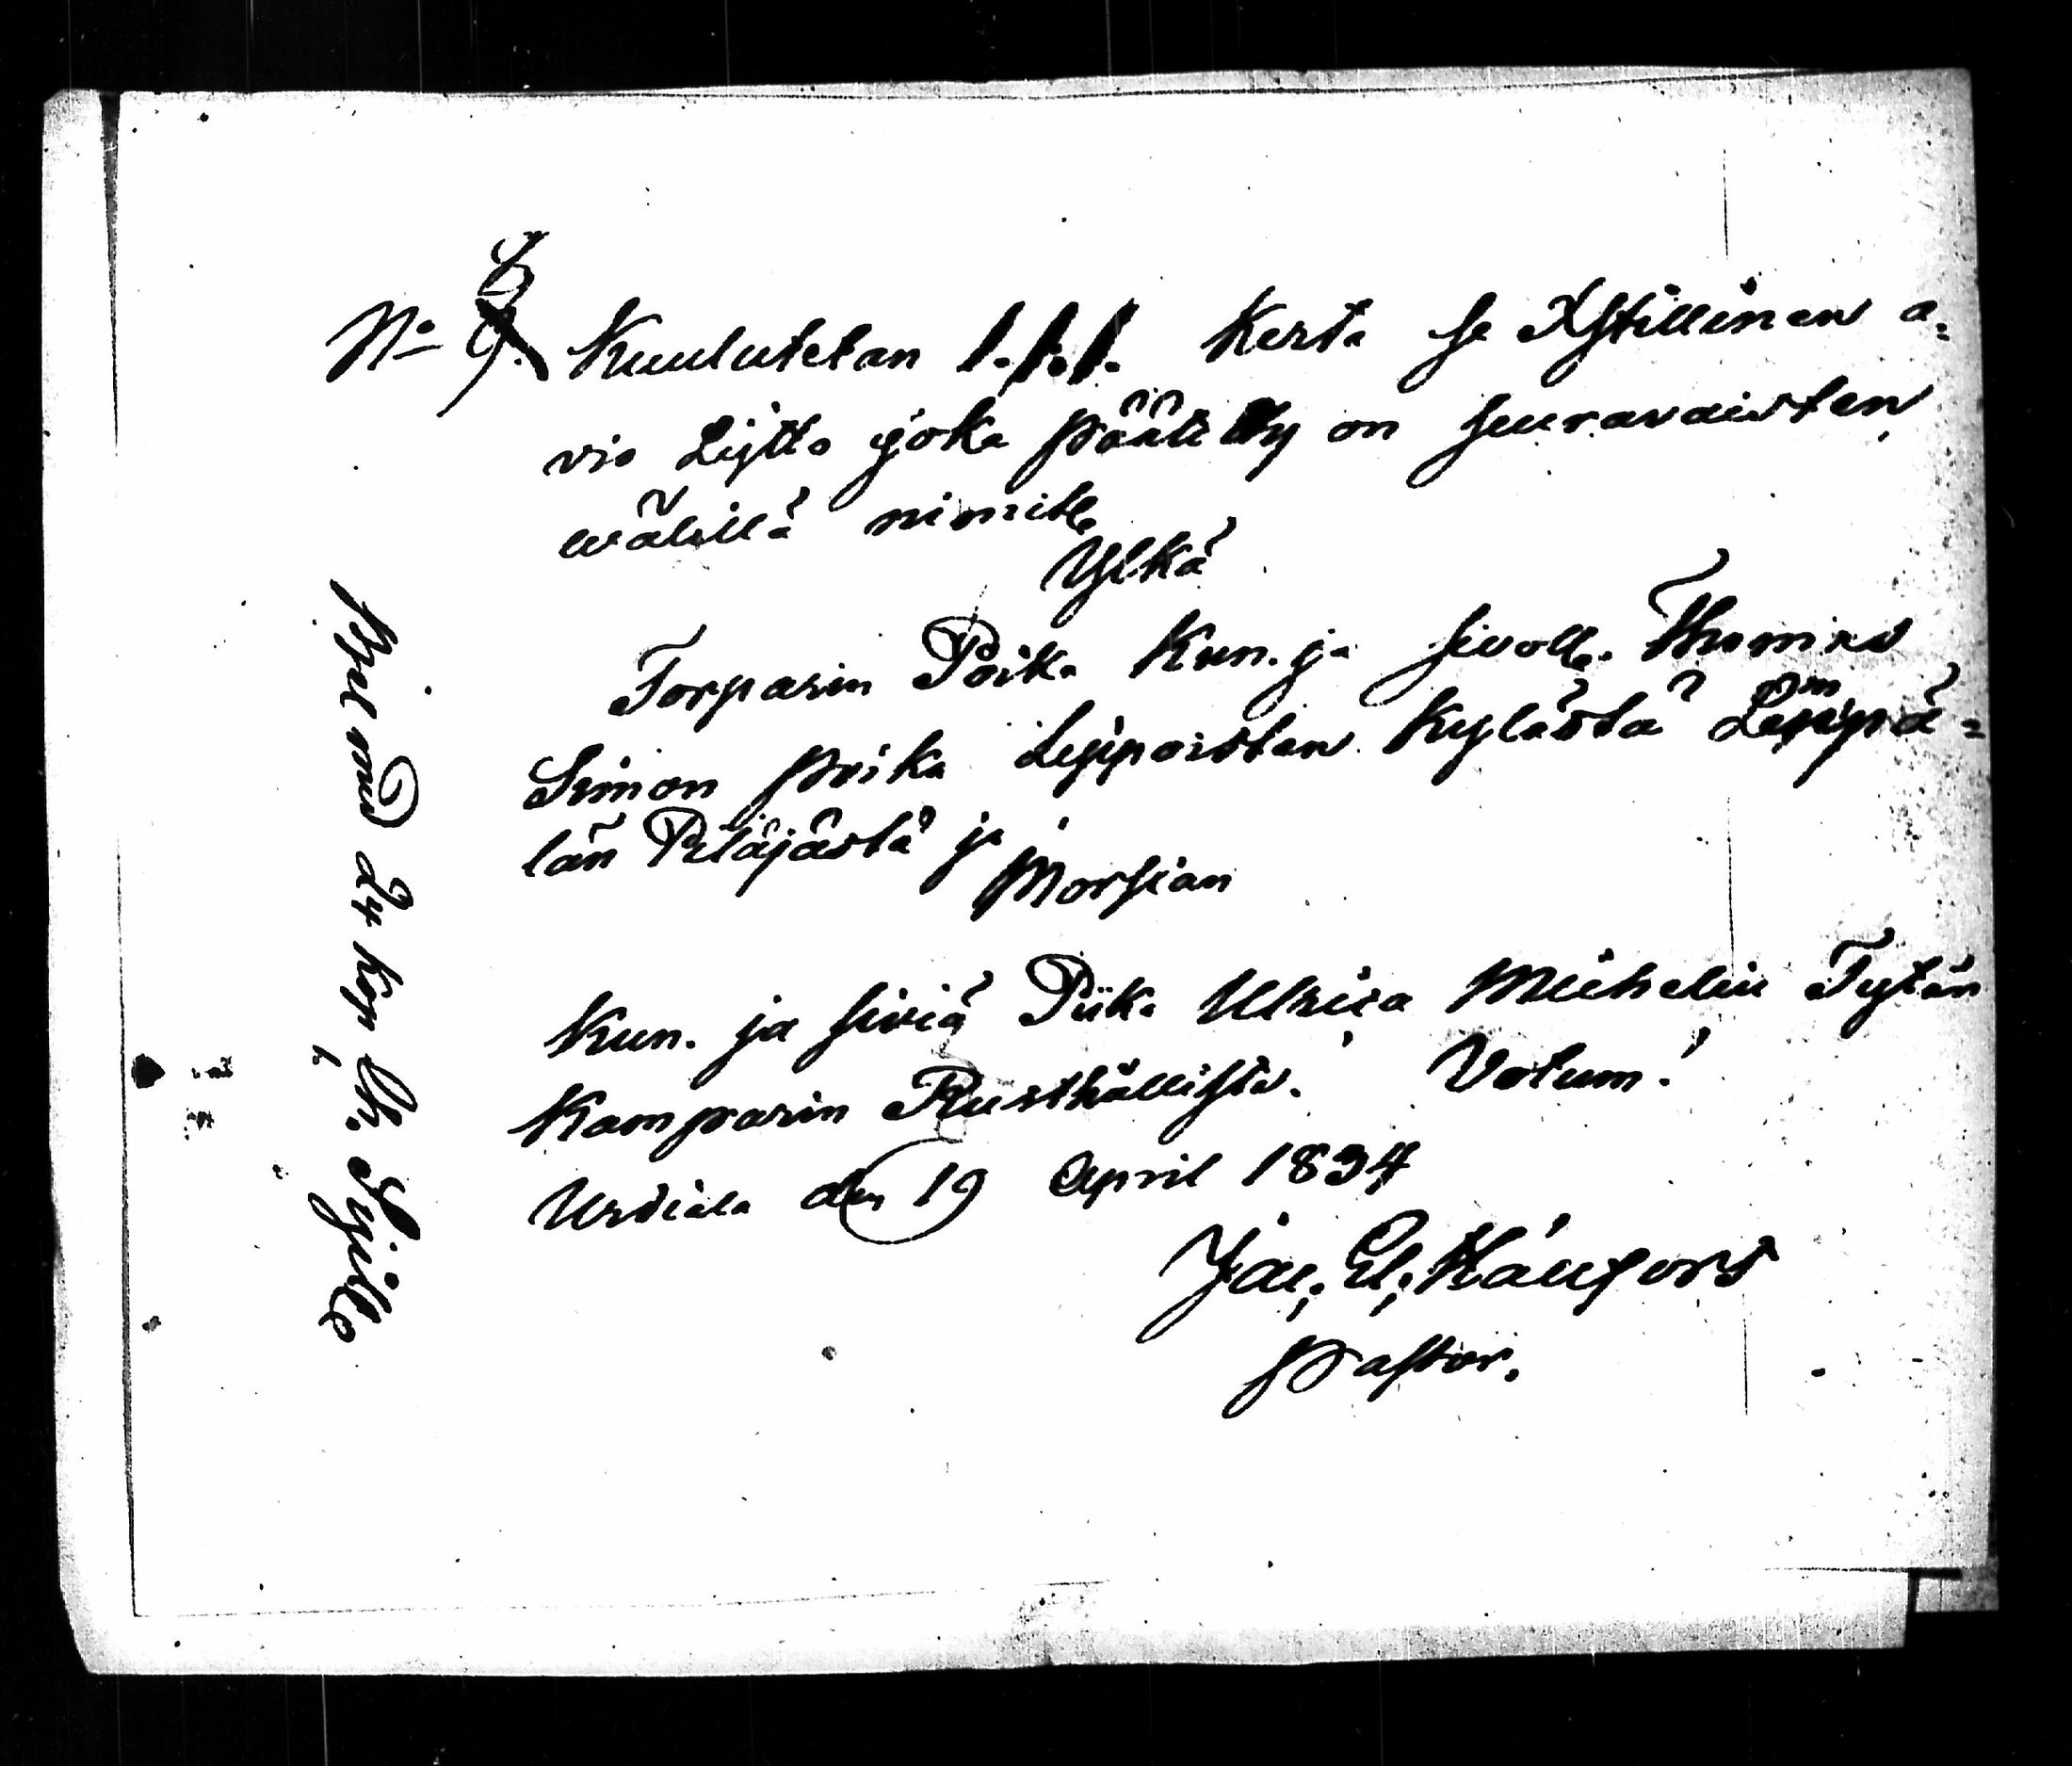 No 8 Kuulutetan 1.1.1. Kerta se Xstillinen a-
vio Lijtto joka päätetty on seuravaisten
wälillä nimitt.
Ylkä
Torparin Poika Kun. ja sivoll. Thomas
Simon poika Leppoisten Kylästä Lempä=
län Pitäjästä ja
Morsian
Kun. ja siviä Piika Ulrica Michelin Tytär
Kamparin Rusthållista. Votum!
Urdiala den 19 April 1834
Jac. El. Känfors
Pastor.
24 Kop